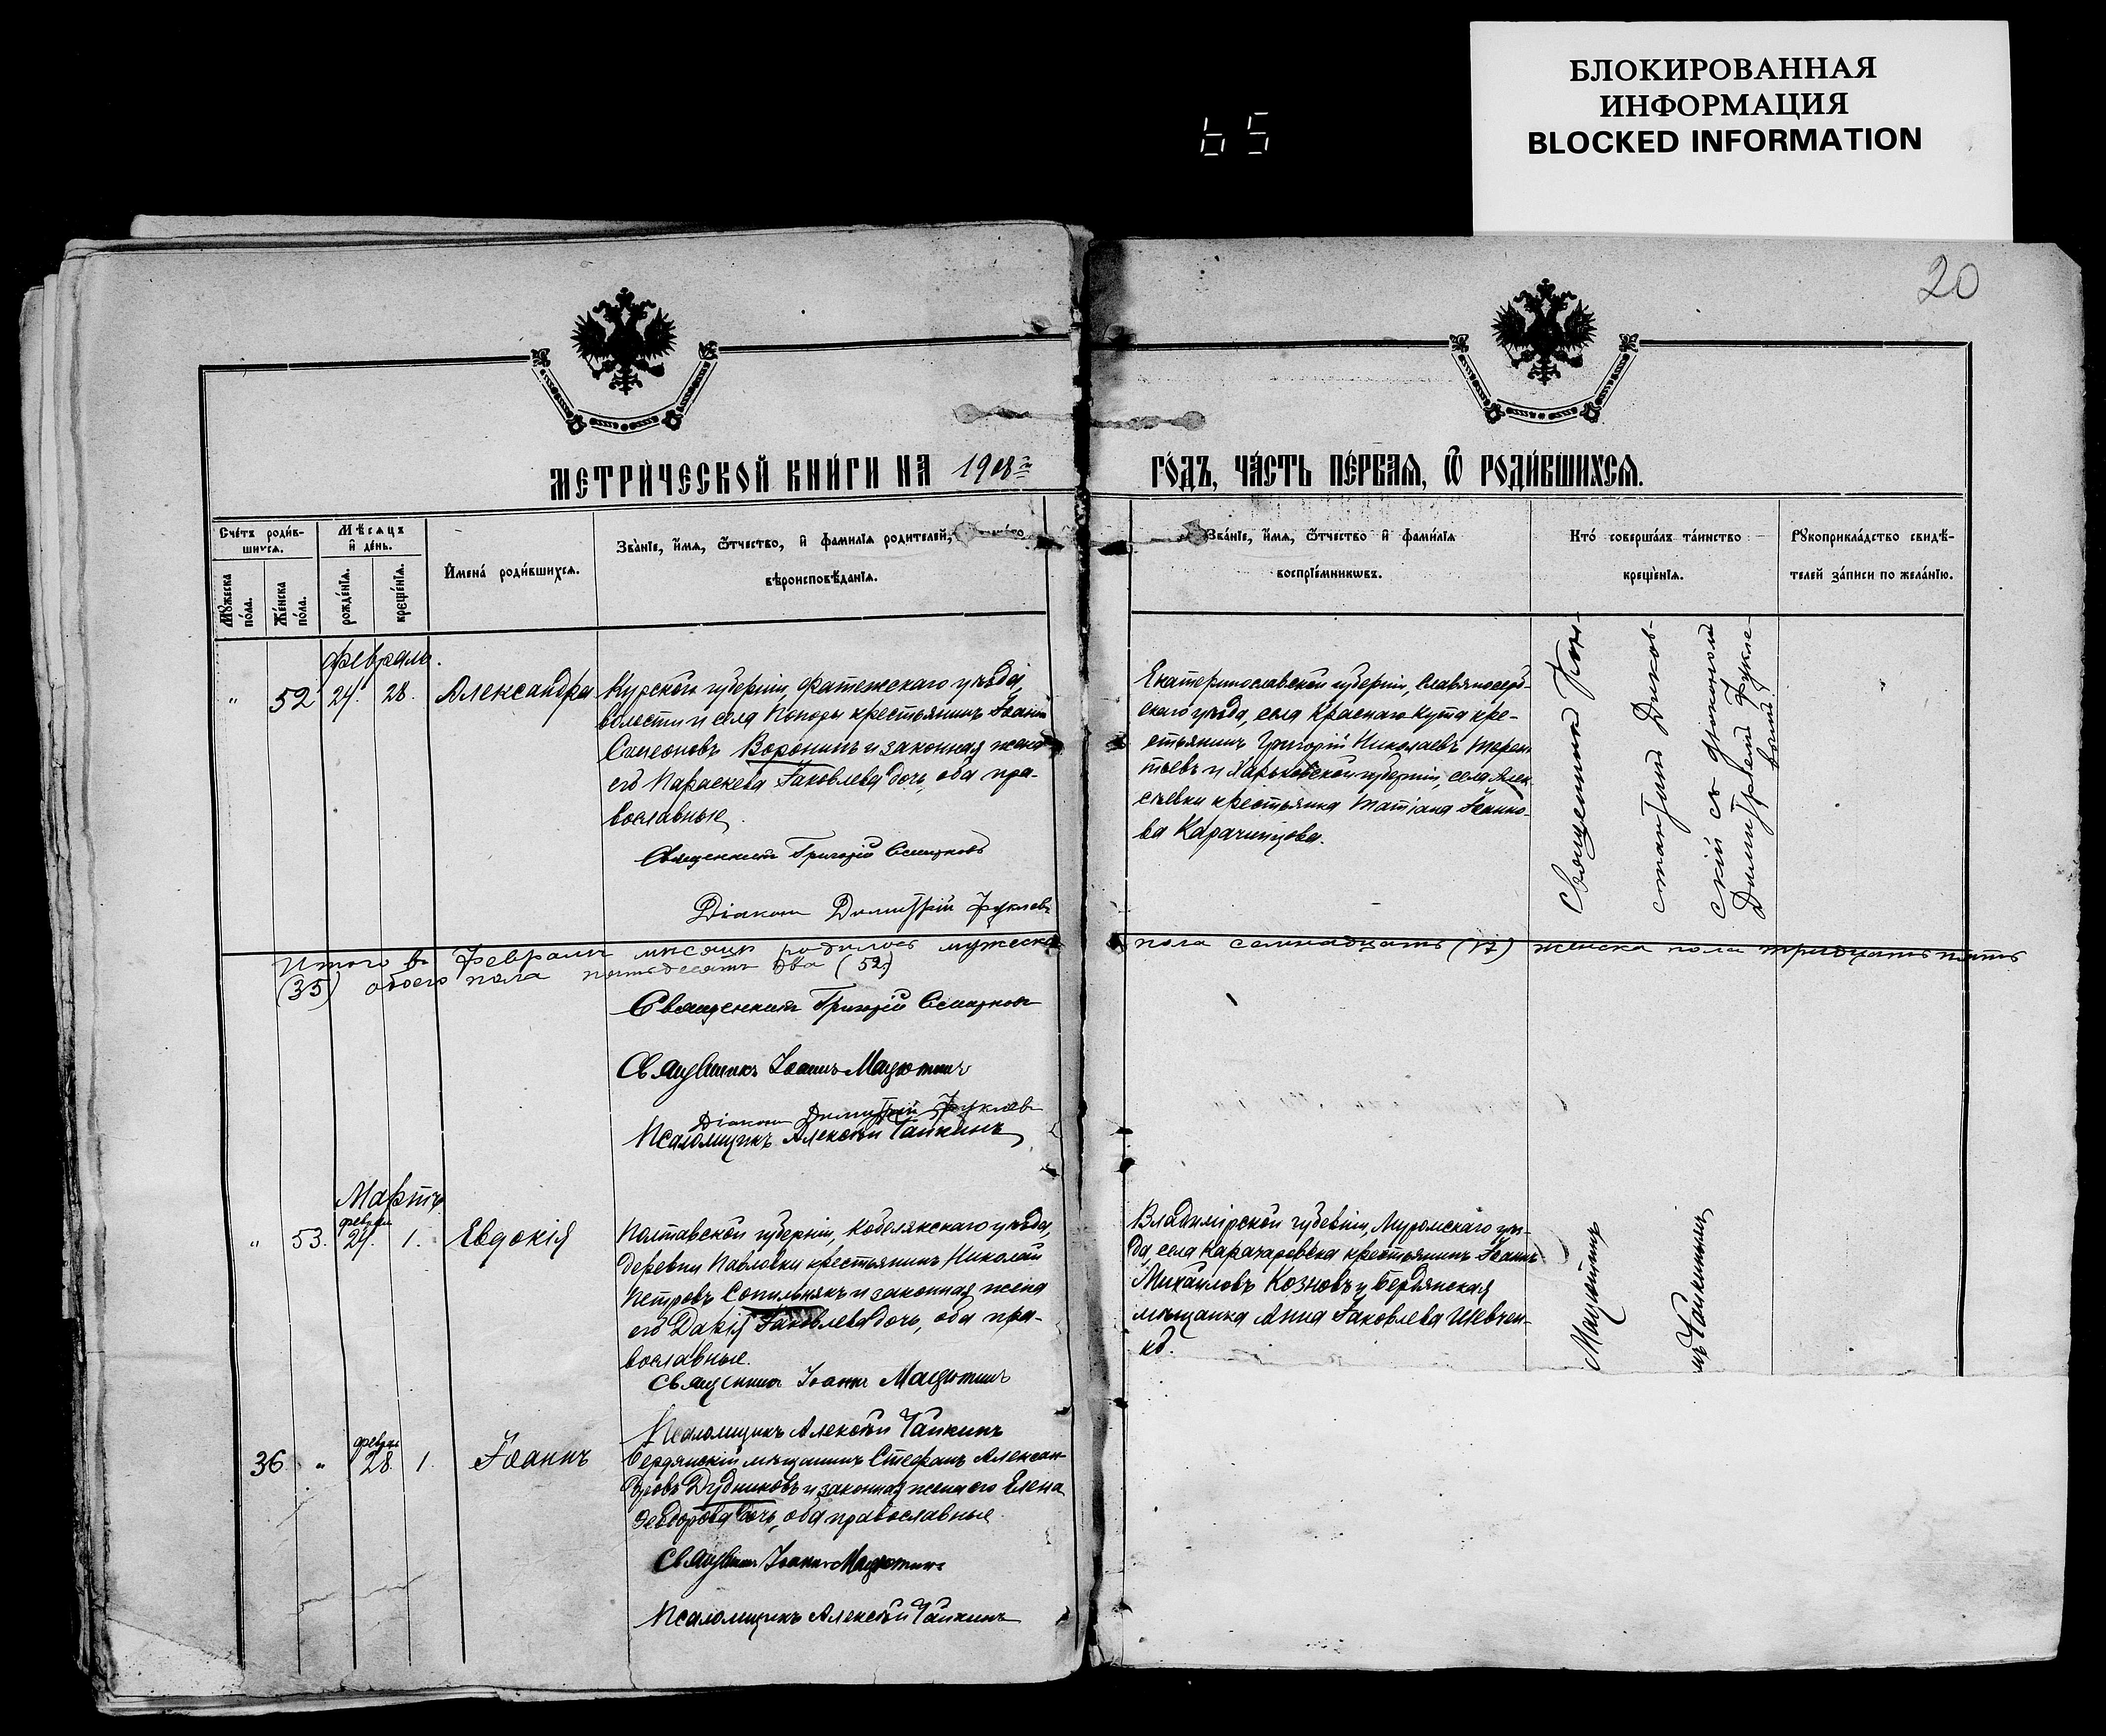 БЛОКИРОВАННАЯ
ИНФОРМАЦИЯ
BLOCKED INFORMATION
65
20
МЕТРИ́ЧЕСКОЙ КНИ́ГИ НА 1908й
ГО́ДЪ, ЧА́СТЬ ПЕ́РВАѦ, Ѿ РОДИ́ВШИХСѦ.
Сче́тъ роди́в-
шихсѧ.
Мꙋжеска по́ла.
Же́нска по́ла.
Мѣ́сѧцъ
и҆ де́нь.
рожде́нїѧ.
креще́нїѧ.
И҆мена̀ роди́вшихсѧ.
Зва́нїе, и҆́мѧ, ѻ҆́тчество, и҆ фами́лїѧ роди́телей,
вѣроисповѣ́данїѧ.
Зва́нїе, и҆́мѧ, ѻ҆́тчество и҆ фами́лїѧ
воспрїе́мникѡвъ.
Кто́ соверша́лъ та́инство
креще́нїѧ.
Рꙋкоприкла́дство свидѣ́-
телей за́писи по жела́нїю.
Февраль.
" 52 24. 28. Александра
Курской губерніи, Фатежскаго уѣзда,
волости и села Нопоры крестьянинъ Іоаннъ
Симеоновъ Воронинъ и законная жена
его Параскева Іаковлева дочь, оба пра-
вославные.
Священникъ Григорій
Діаконъ Димитрій
Екатеринославской губерніи, Славяносерб-
скаго уѣзда, села Краснаго Кута кре-
стьянинъ Григорій Николаевъ Терен-
тьевъ и Харьковской губерніи, села Алек-
сѣевки крестьянка Татіана Іоанно-
ва Карачинцова.
Священникъ Кон-
стантинъ Диков-
скій съ діакономъ
Димитріемъ
Итого въ Февралѣ мѣсяцѣ родилось мужеска
пола семнадцать (17) женска пола тридцать пять
(35) обоего пола пятьдесятъ два (52)
Священникъ Григорій
Священникъ Іоаннъ Мацютинъ
Діаконъ Димитрій
Псаломщикъ Алексѣй Чайкинъ
Мартъ
" 53. феврал 24. 1. Евдокія
Полтавской губерніи, Кобелякскаго уѣзда,
деревни Павловки крестьянинъ Николай
Петровъ Сопильнякъ и законная жена
его Дарія Іаковлева дочь, оба пра-
вославные.
Священникъ Іоаннъ Мацютинъ
Псаломщикъ Алексѣй Чайкинъ
Владимірской губерніи, Муромскаго уѣз-
да села Карачаровска крестьянинъ Іоаннъ
Михаиловъ Козновъ и Бердянская
мѣщанка Анна Іаковлева Шевчен-
ко.
Мацютинъ
мъ Чайкинымъ
36 " феврал 28. 1. Іоаннъ
Бердянскій мѣщанинъ Стефанъ Алексан-
дровъ Дудниковъ и законная жена его Елена
Ѳеодорова дочь, оба православные.
Священникъ Іоаннъ Мацютинъ
Псаломщикъ Алексѣй Чайкинъ